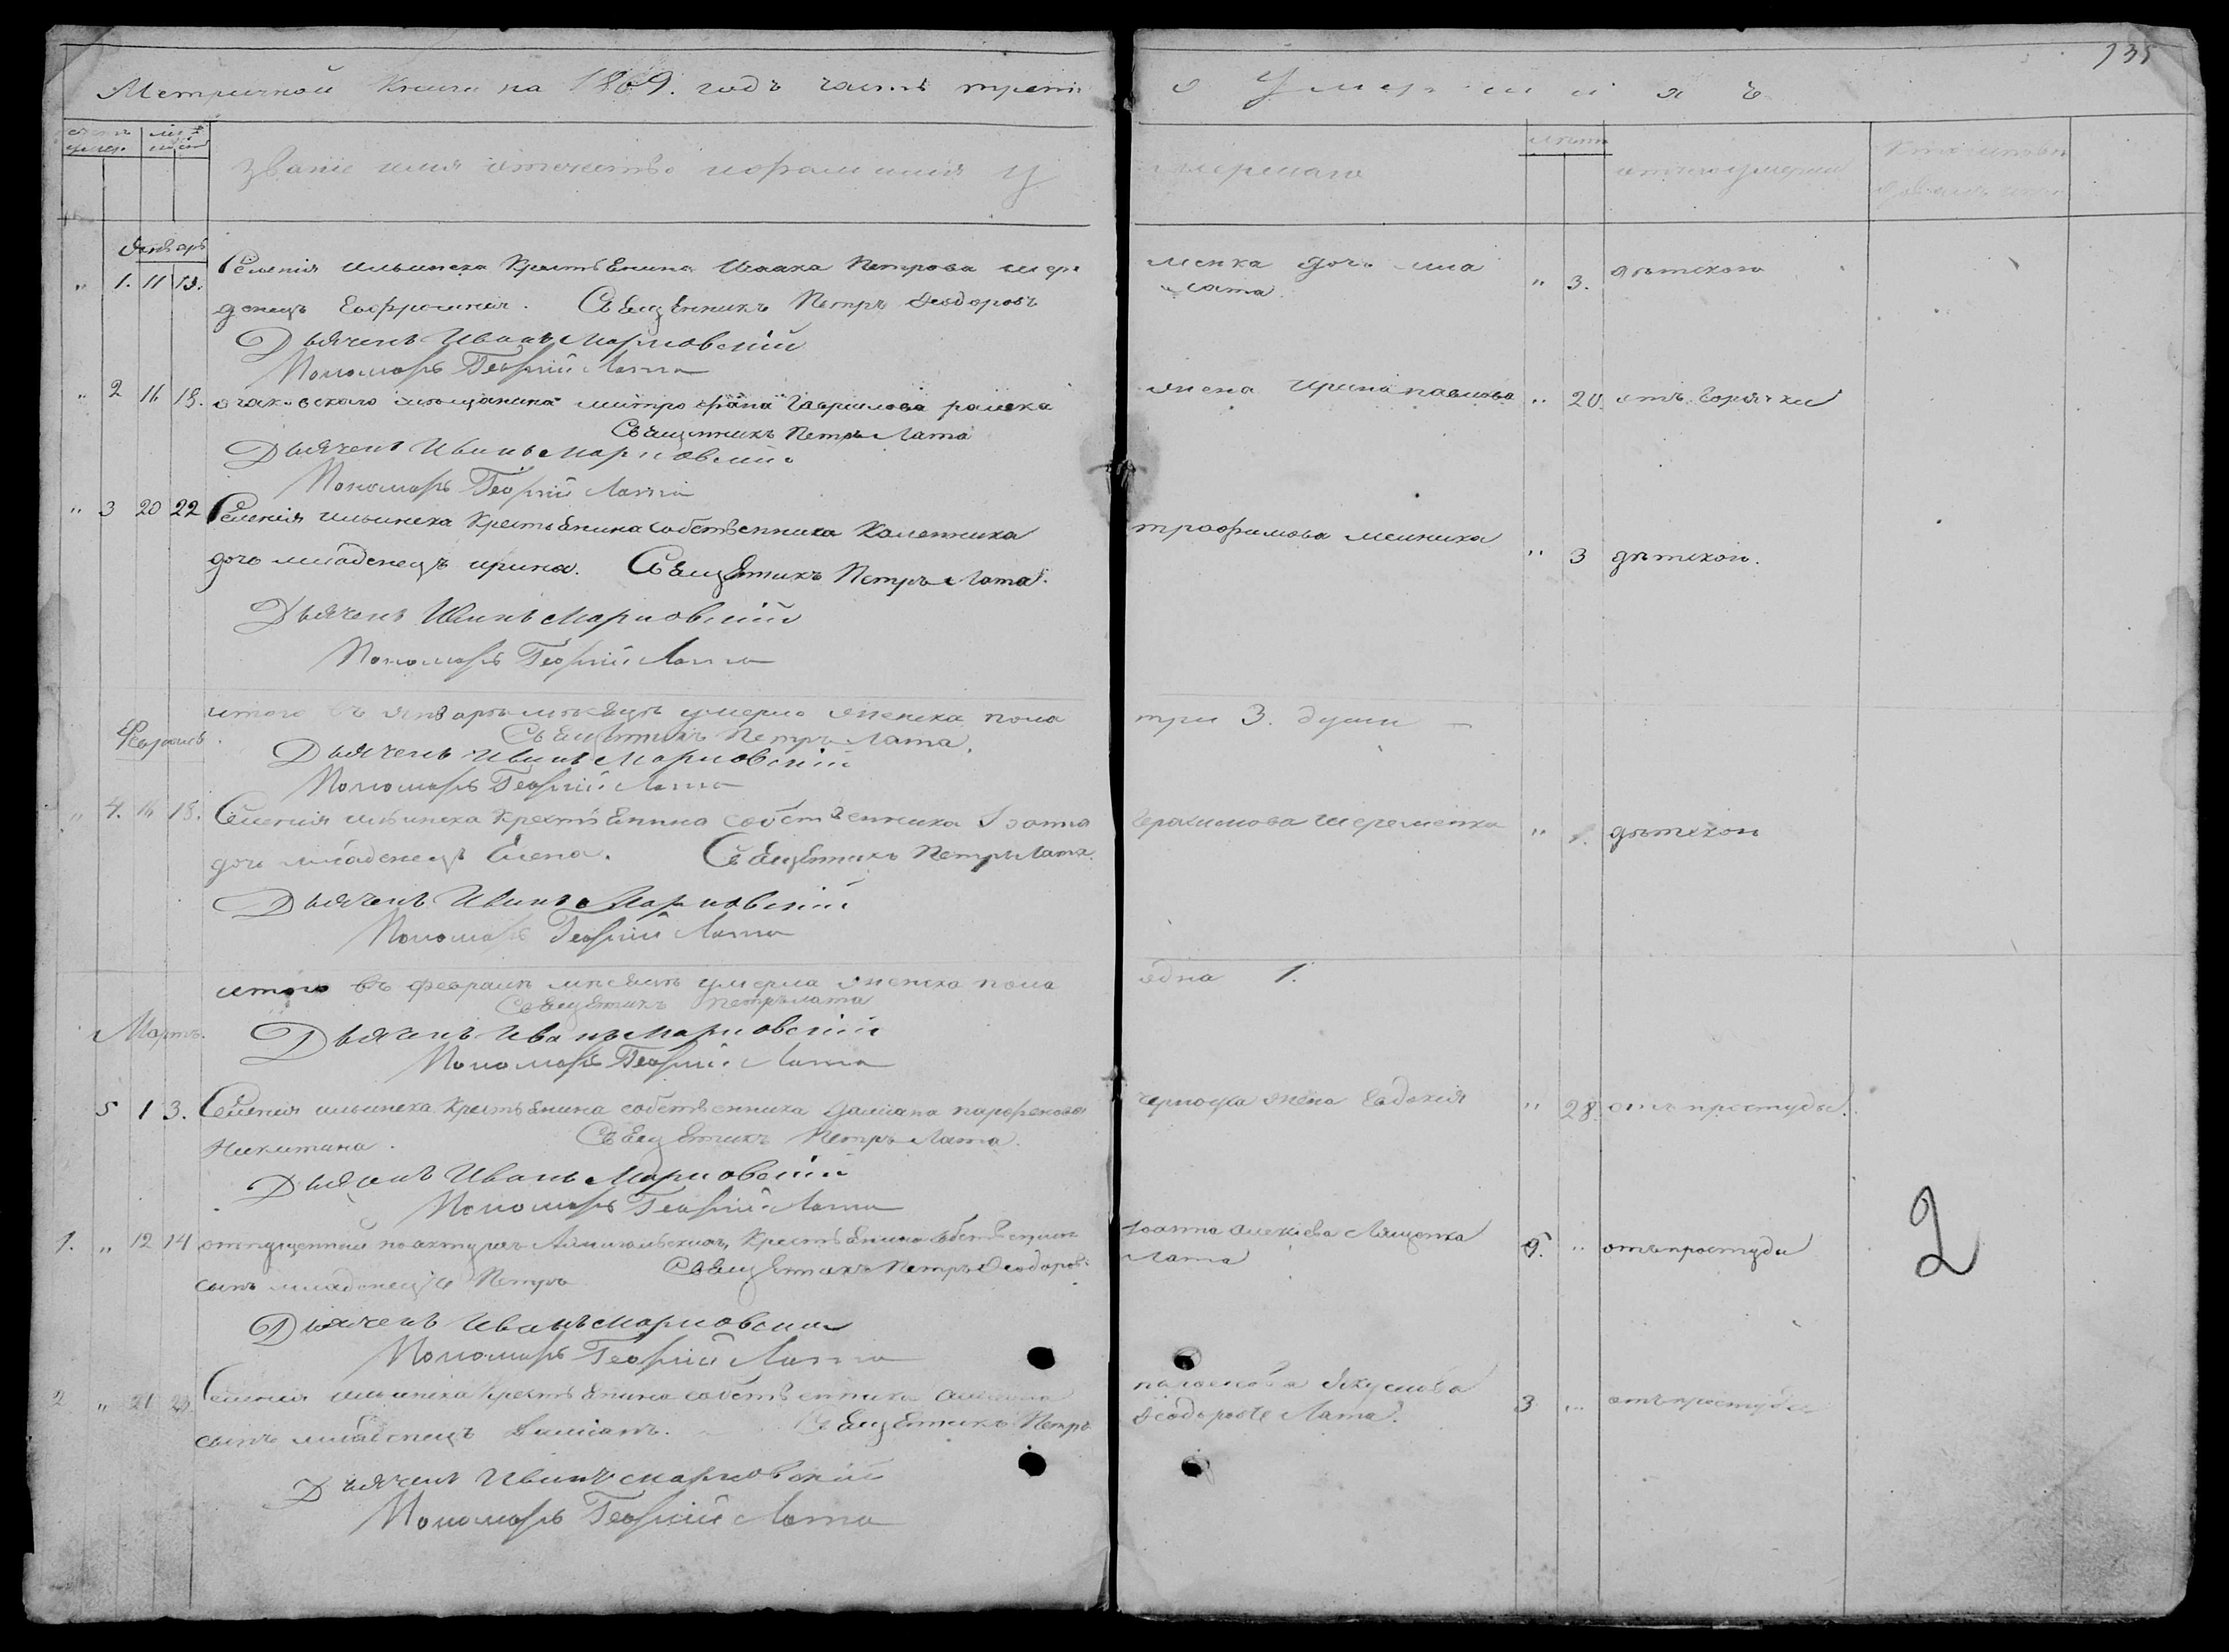 135
Метричной Книги на 1869. годъ часть третя о Умершихъ
званіе имя отечество и фамилія умершаго
лѣта
отчего умерли
Январь
" 1. 11 13. Селенія ильинска Крестьянина Исаака Петрова шере менка дочь мла " 3. дѣтскою
денецъ Евфросинія. Священникъ Петръ Ѳеодоровъ Лата.
Дьячекъ Иванъ Марковскій
Пономарь Георгій Лата
" 2 16 18. очаковского мещанина митрофана Гаврилова жена Ирина павлова " 20. отъ Горячки
Священникъ Петръ Лата
Дьячекъ Иванъ Марковскій
Пономарь Георгій Лата
" 3 20 22 Селенія ильинска Крестьянина собственника трофимова " 3 дѣтскою.
дочь младенецъ ирина. Священникъ Петръ Лата.
Дьячекъ Иванъ Марковскій
Пономарь Георгій Лата
итого въ январѣ мѣсяцѣ умерло женска пола три 3. души
Священникъ Петръ Лата.
Февраль.
Дьячекъ Иванъ Марковскій
Пономарь Георгій Лата
" 4. 16 18. Селенія ильинска Крестьянина собственника Іоанна Герасимова шеременка " 1. дѣтскою
дочь младенецъ Елена. Священникъ Петръ Лата.
Дьячекъ Иванъ Марковскій
Пономарь Георгій Лата
итого въ февралѣ мѣсяцѣ умерла женска пола една 1.
Священникъ Петръ Лата
Мартъ.
Дьячекъ Иванъ Марковскій
Пономарь Георгій Лата
5 1 3. Селенія ильинска Крестьянина собственника Даміана парфенова черноуса жена Евдокія " 28. отъ простуды.
Никитина. Священникъ Петръ Лата.
Дьячекъ Иванъ Марковскій
Пономарь Георгій Лата
1. " 12 14 Крестьянина Іоанна алексіева Лященка " отъ простуды
2
сынъ младенецъ Петръ Священникъ Петръ Ѳеодоровъ Лата
Дьячекъ Иванъ Марковскій
Пономарь Георгій Лата
2 " 21 23. Селенія ильинска Крестьянина собственника 3 " отъ простуды
сынъ младенецъ Даміанъ. Священникъ Петръ Ѳеодоровъ Лата.
Дьячекъ Иванъ Марковскій
Пономарь Георгій Лата